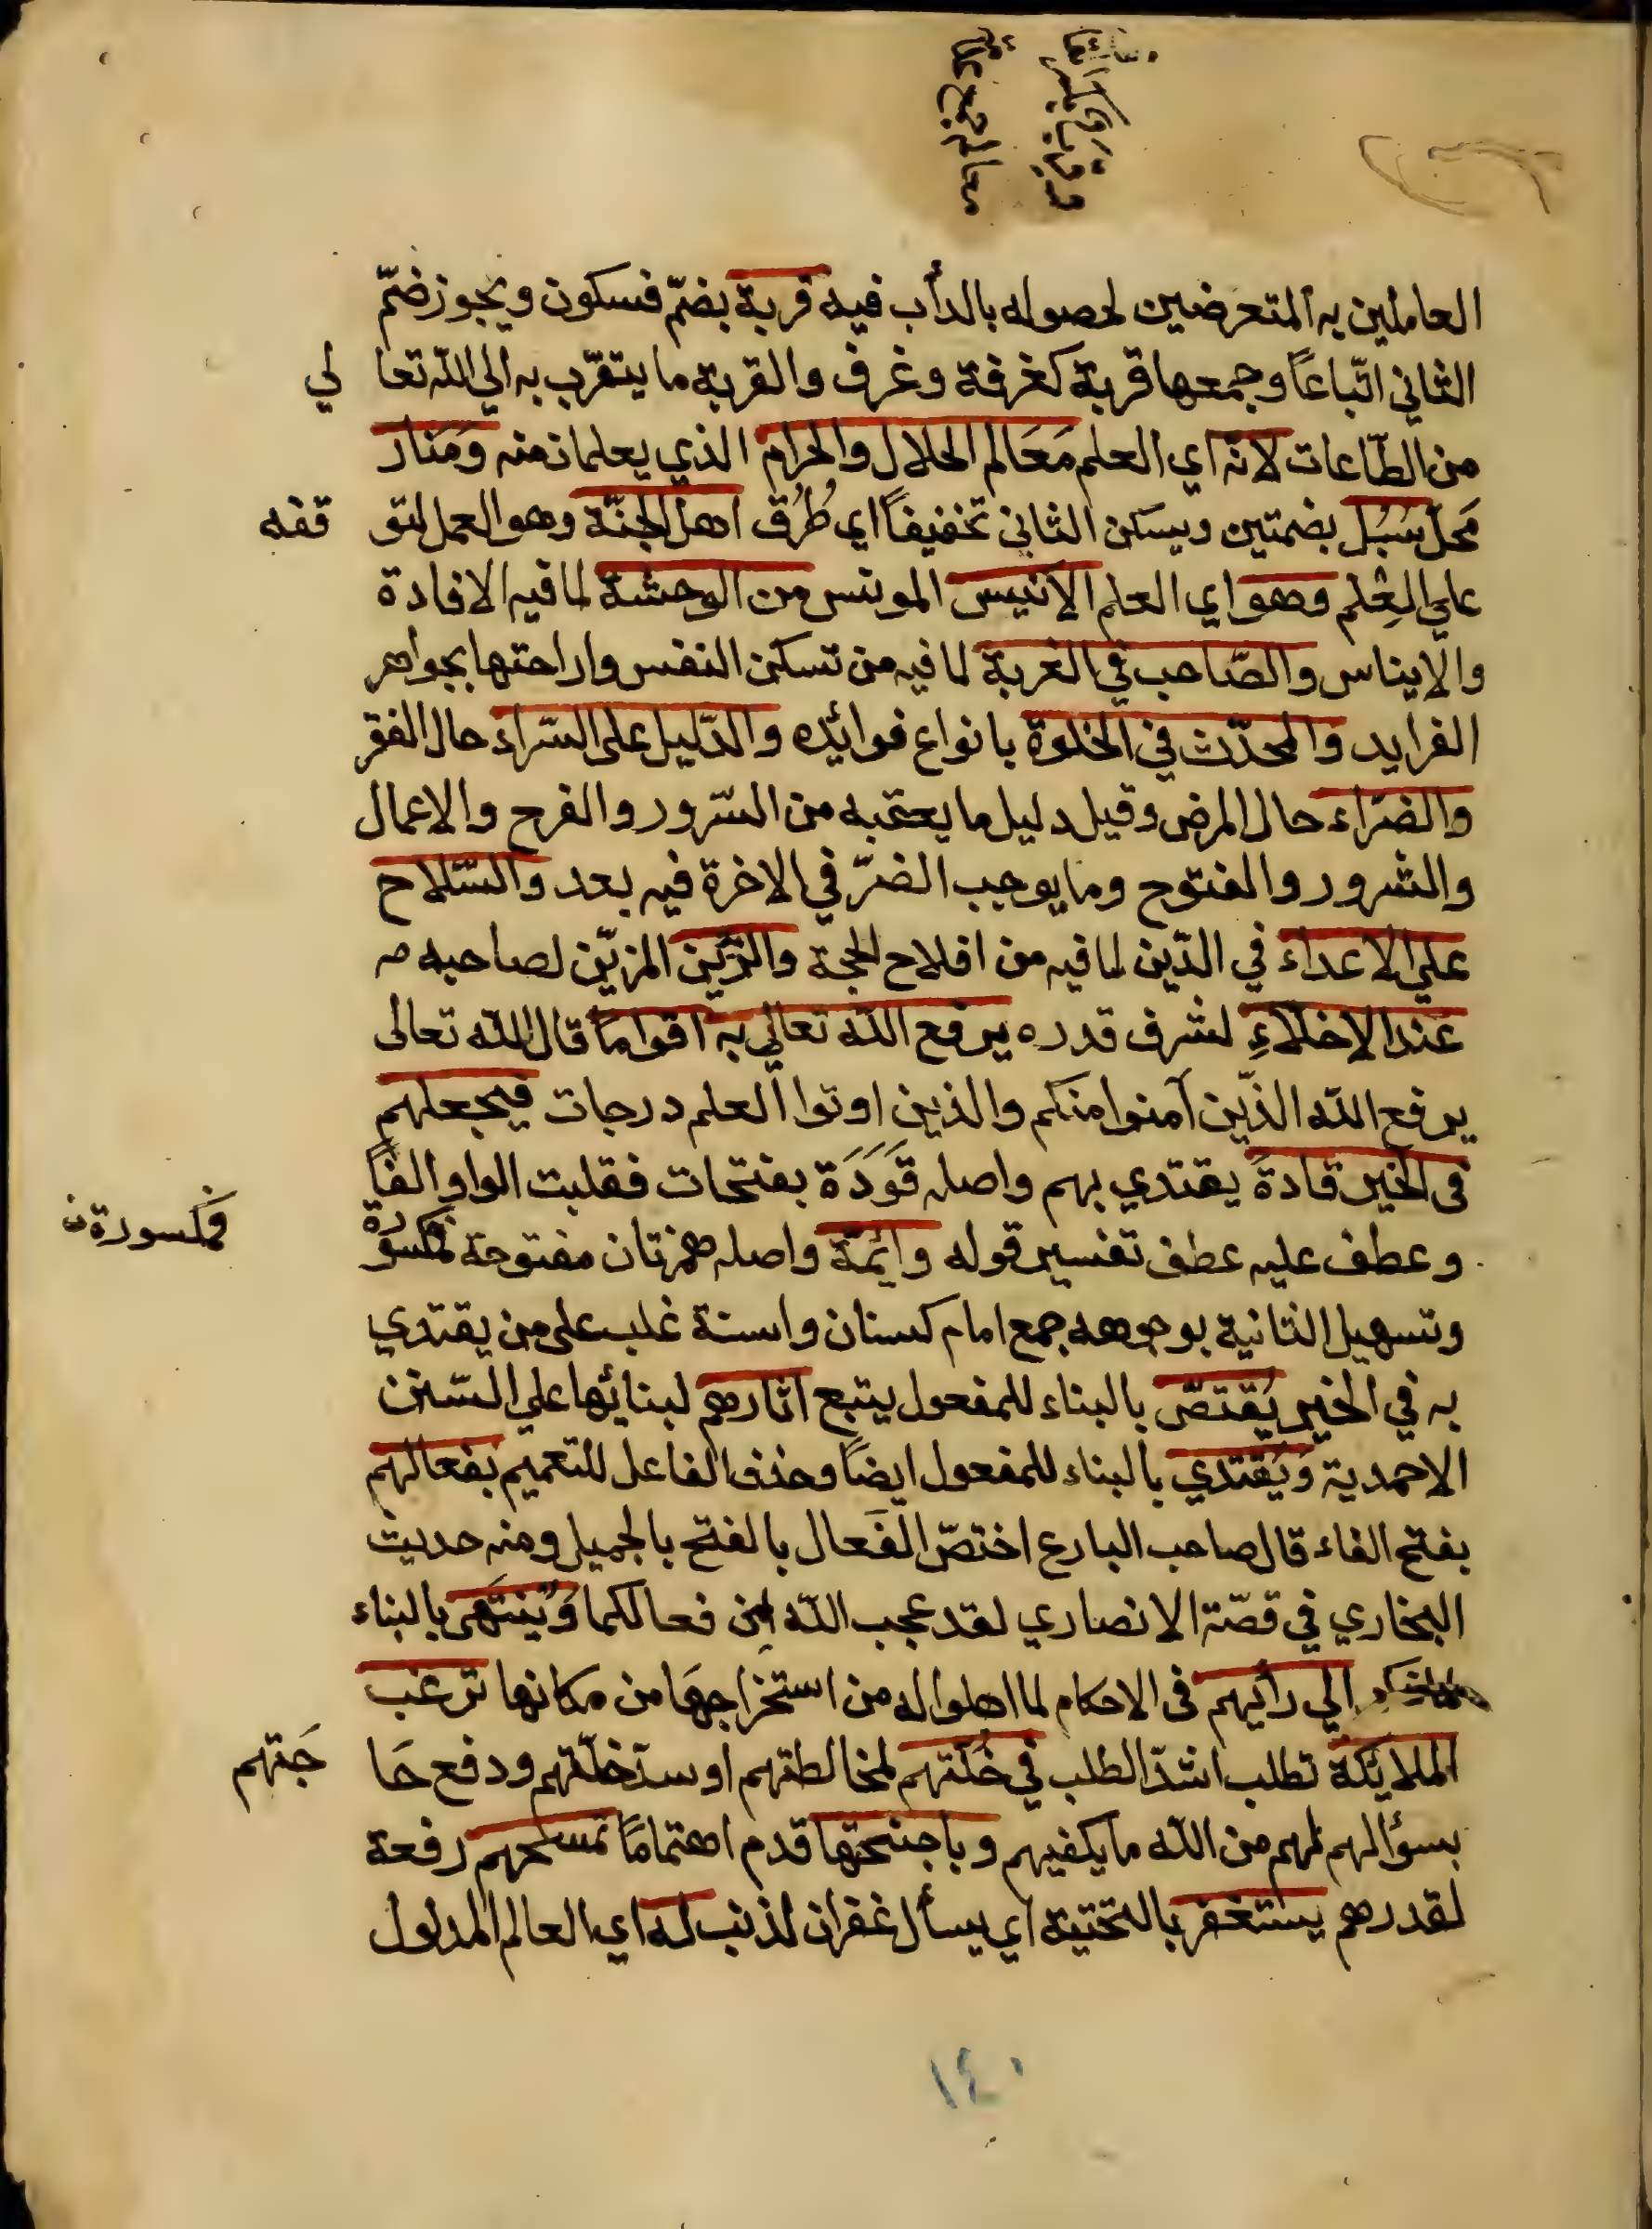 العاملين به المتعرضين لحصوله بالدأب فيه قربة بضمّ فسكون ويجوز ضمّ
الثاني اتّباعاً وجمعها قربة كغرفة وغرف والقربة ما يتقرّب به الي اللّه تعالي
من الطّاعات لانّه اي العلم مَعَالم الحلال والحرام الذي يعلمان منه وَمَنار
مَحلّ سُبُل بضمتين ويسكن الثاني تخفيفاً اي طُرُق اهل الجنّة وهو العمل لتوقفه
علي العِلم وهو اي العلم الانيس المونس من الوحشة لما فيه الافادة
والايناس والصّاحب في الغربة لما فيه من تسكن النفس واراحتها بجواهر
الفرايد والمحدّث في الخلوة بانواع فوائده والدّليل على السّراء حال الفقر
والضرّاء حال المرض وقيل دليل ما يعتبه من السّرور والفرح والاعمال
والشرور والفتوح وما يوجب الضرّ في الاخرة فيه بعد والسّلاح
علي الاعداء في الدّين لما فيه من افلاح الحجة والزّين المزيّن لصاحبه
عند الاخلّاءِ لشرف قدره يرفع اللّه تعالي به اقواماً قال اللّه تعالى
يرفع اللّه الذّين آمنوا منكم والذين اوتوا العلم درجات فيجعلهم
فى الخير قادةً يقتدي بهم واصله قَوَدَة بفتحات فقلبت الواو الفاً
وعطف عليه عطف تفسير قوله وائمّة واصله همزتان مفتوحة فمكسورة
فمكسورة ن
وتسهيل الثانية بوجوهه جمع امام كسنان واسنة غلب على من يقتدي
به في الخير يُقتصّ بالبناء للمفعول يتبع اثارهم لبنائها علي السّنن
الاحمدية وَيُقتدي بالبناء للمفعول ايضاً وحذف الفاعل للتعميم بفعالهم
بفتح الفاء قال صاحب البارع اختصّ الفَعال بالفتح بالجميل ومنه حديث
البخاري في قصّة الانصاري لقد عجب اللّه من فعالكما وَيُنتَهى بالبناء
الي رأيهم فى الاحكام لما اهلوا له من استخراجهَا من مكانها ترغب
الملايكة تطلب اشدّ الطلب في خُلّتهم لمخالطتهم او سدّ خلّتهم ودفع حَاجَتهم
بسؤالهم لهم من اللّه ما يكفيهم وباجنحتها قدم اهتماماً تمسحهم رفعة
لقدرهم يستغفر بالتحتية اي يسأل غفران لذنب له اي العالم المدلول
١٤٠